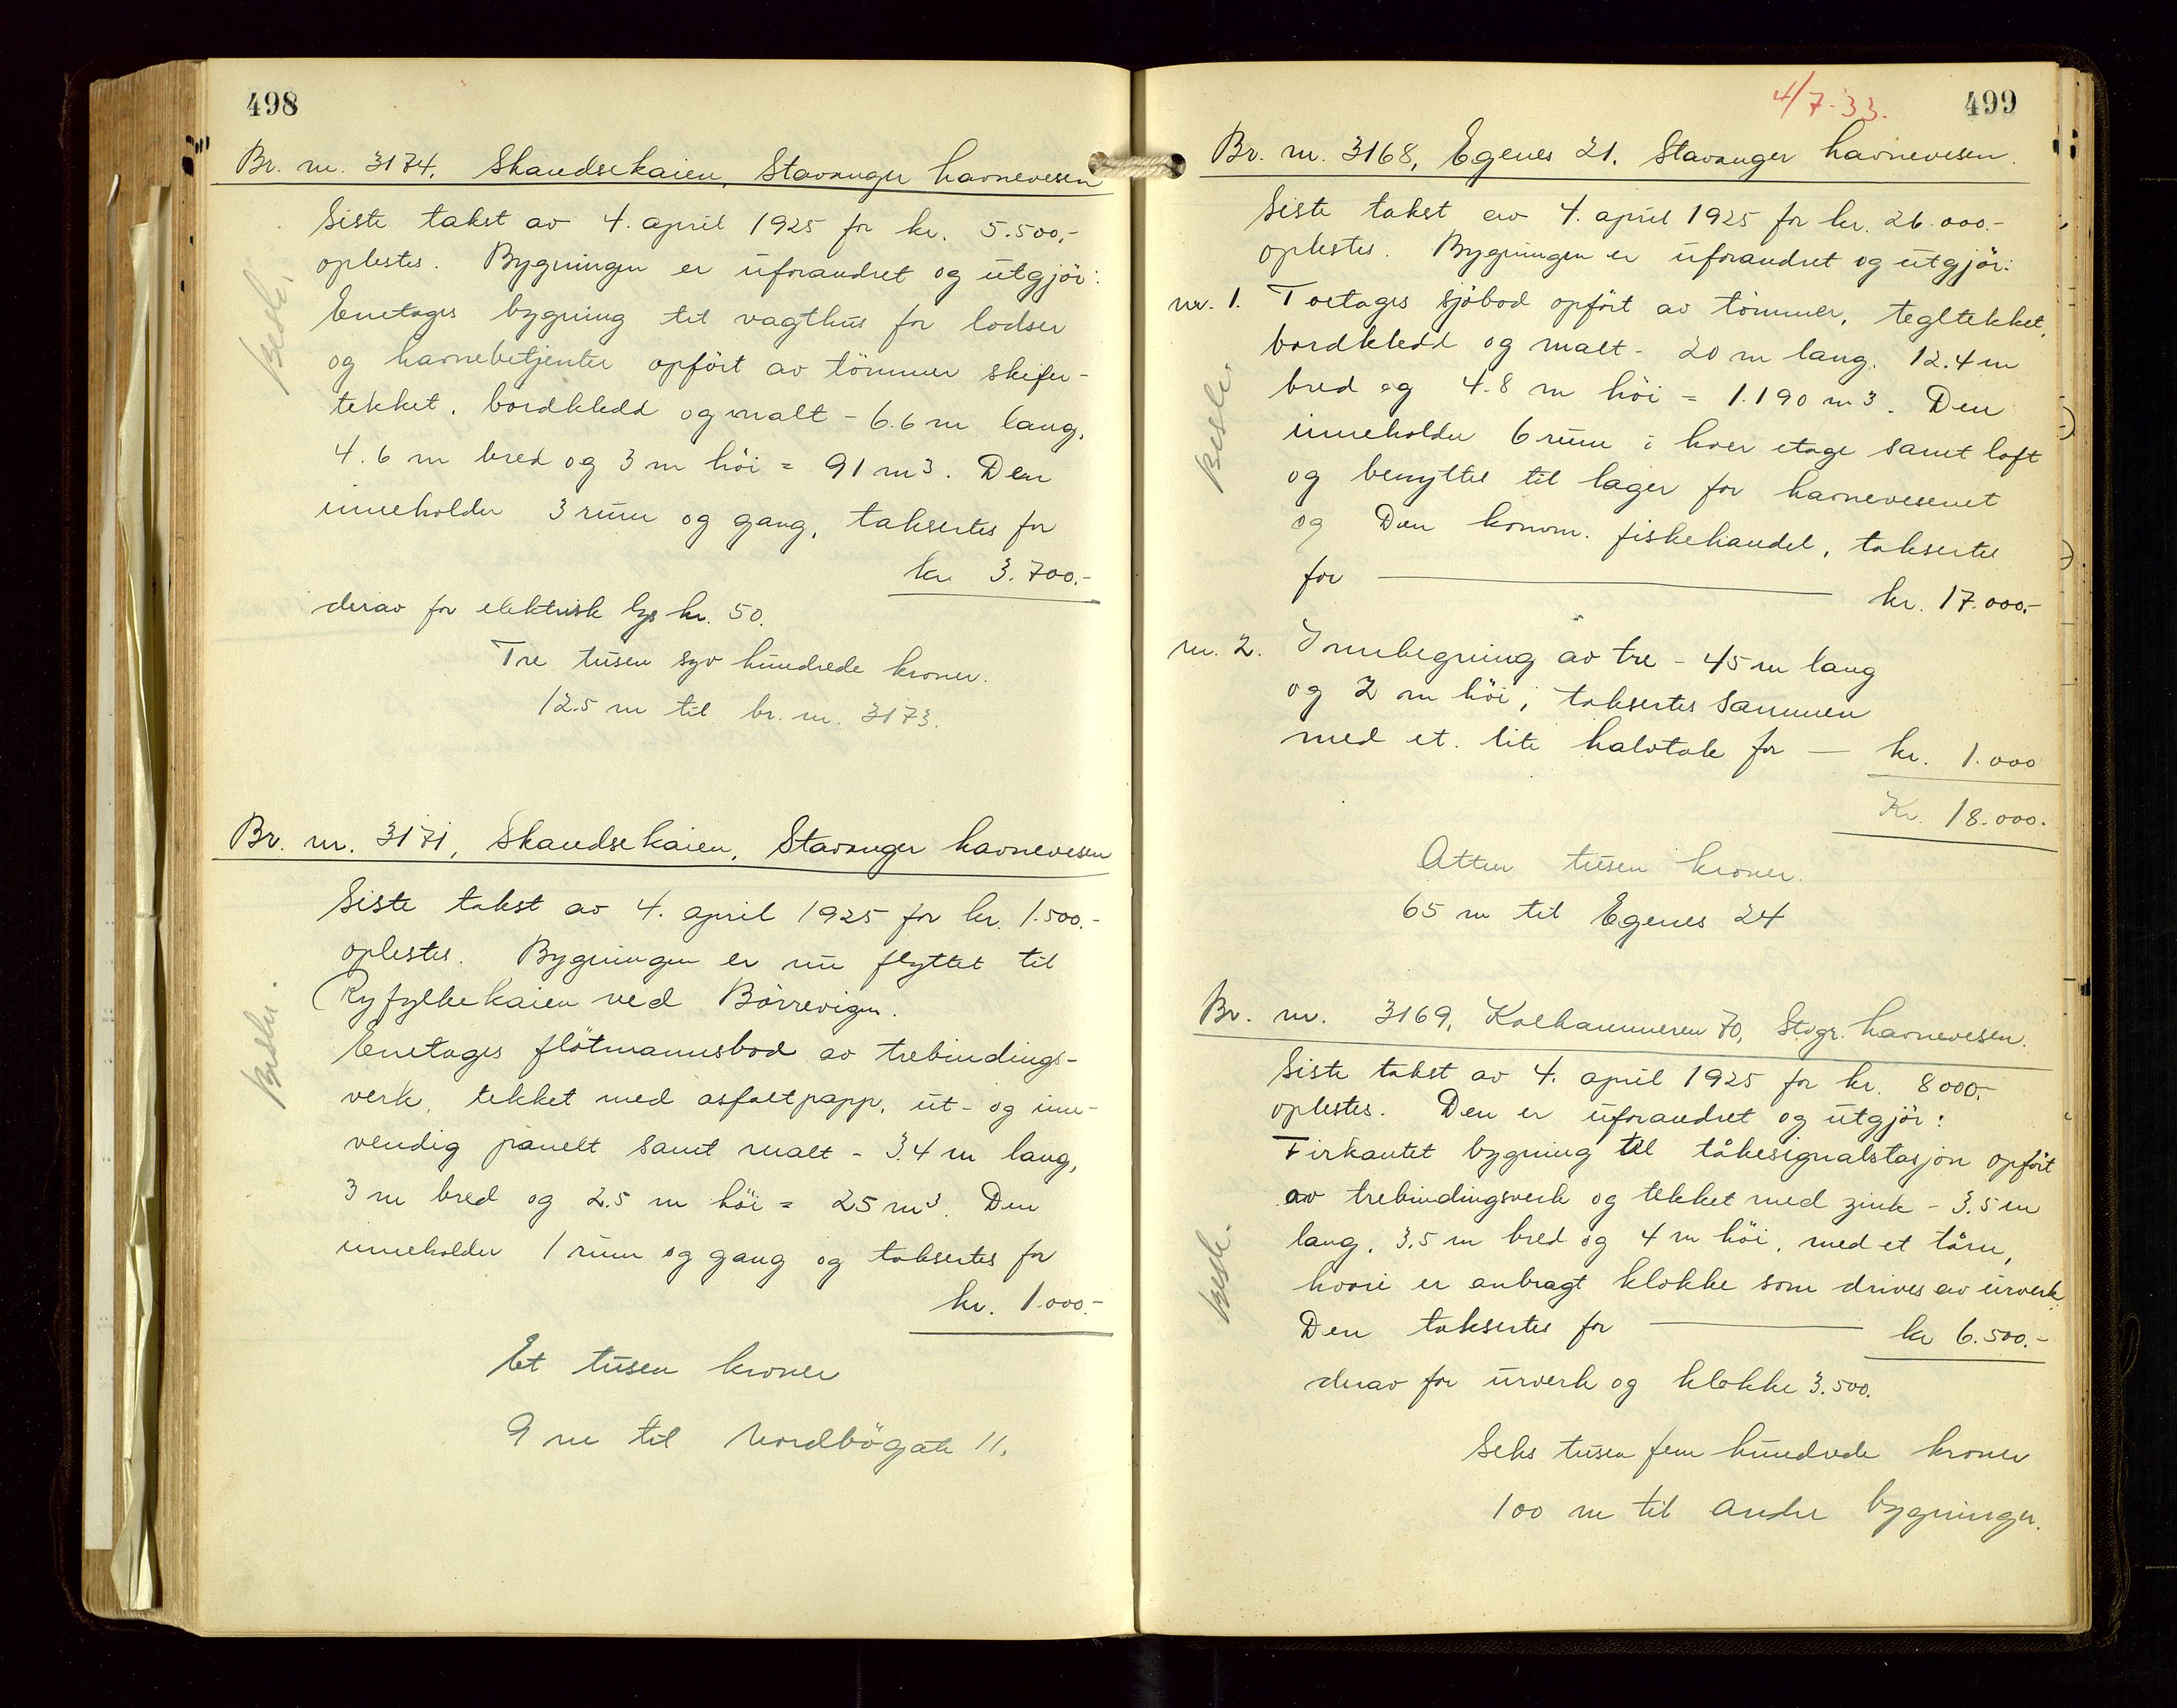 498
Br. nr. 3174, Skandsekaien, Stavanger havnevesen
Siste takst av 4. april 1925 for kr. 5.500,-
oplestes. Bygningen er uforandret og utgjör:
Enetages bygning til vagthus for lodser
og havnebetjenter opfört av tömmer skifer-
tekket, bordkledd og malt - 6.6 m lang,
4.6 m bred og 3 m höi = 91 m3. Den
inneholder 3 rum og gang, taksertes for
kr. 3.700.-
derav for elektrisk lys kr. 50.
Tre tusen syv hundrede kroner.
12.5 m til br. nr. 3173.
Br. nr. 3171, Skandsekaien, Stavanger havnevesen
Siste takst av 4. april 1925 for kr. 1.500.-
oplestes. Bygningen er nu flyttet til
Ryfylkekaien ved Börrevigen.
Enetages flötmannsbod av trebindings-
verk, tekket med asfaltpapp, ut- og inn-
vendig panelt samt malt - 3.4 m lang,
3 m bred og 2.5 m höi = 25 m3. Den
inneholder 1 rum og gang og taksertes for
kr. 1.000.-
Et tusen kroner
9 m til Nordbögate 11.
4/7-33.
499
Br. nr. 3168, Egenes 21, Stavanger havnevesen.
Siste takst av 4. april 1925 for kr. 26.000.-
oplestes. Bygningen er uforandret og utgjör:
nr. 1. Toetages sjöbod opfört av tömmer, tegltekket,
bordkledd og malt - 20 m lang, 12.4 m
bred og 4.8 m höi = 1.190 m3. Den
inneholder 6 rum i hver etage samt loft
og benyttes til lager for havnevesenet
og Den komm. fiskehandel, taksertes
for kr. 17.000,-
nr. 2. Innhegning av tre - 45 m lang
og 2 m höi, taksertes sammen
med et lite halvtak for - kr. 1.000
Kr. 18.000.
Atten tusen kroner.
65 m til Egenes 24
Br. nr. 3169, Kalhammeren 70, Stvgr. havnevesen.
Siste takst av 4. april 1925 for kr. 8000,-
oplestes. Den er uforandret og utgjör:
Firkantet bygning til tåkesignalstasjon opfört
av trebindingsverk og tekket med zink - 3.5 m
lang, 3.5 m bred og 4 m höi, med et tårn,
hvori er anbragt klokke som drives av urverk.
Den taksertes for kr 6.500.-
derav for urverk og klokke 3.500.
Seks tusen fem hundrede kroner
100 m til andre bygninger.